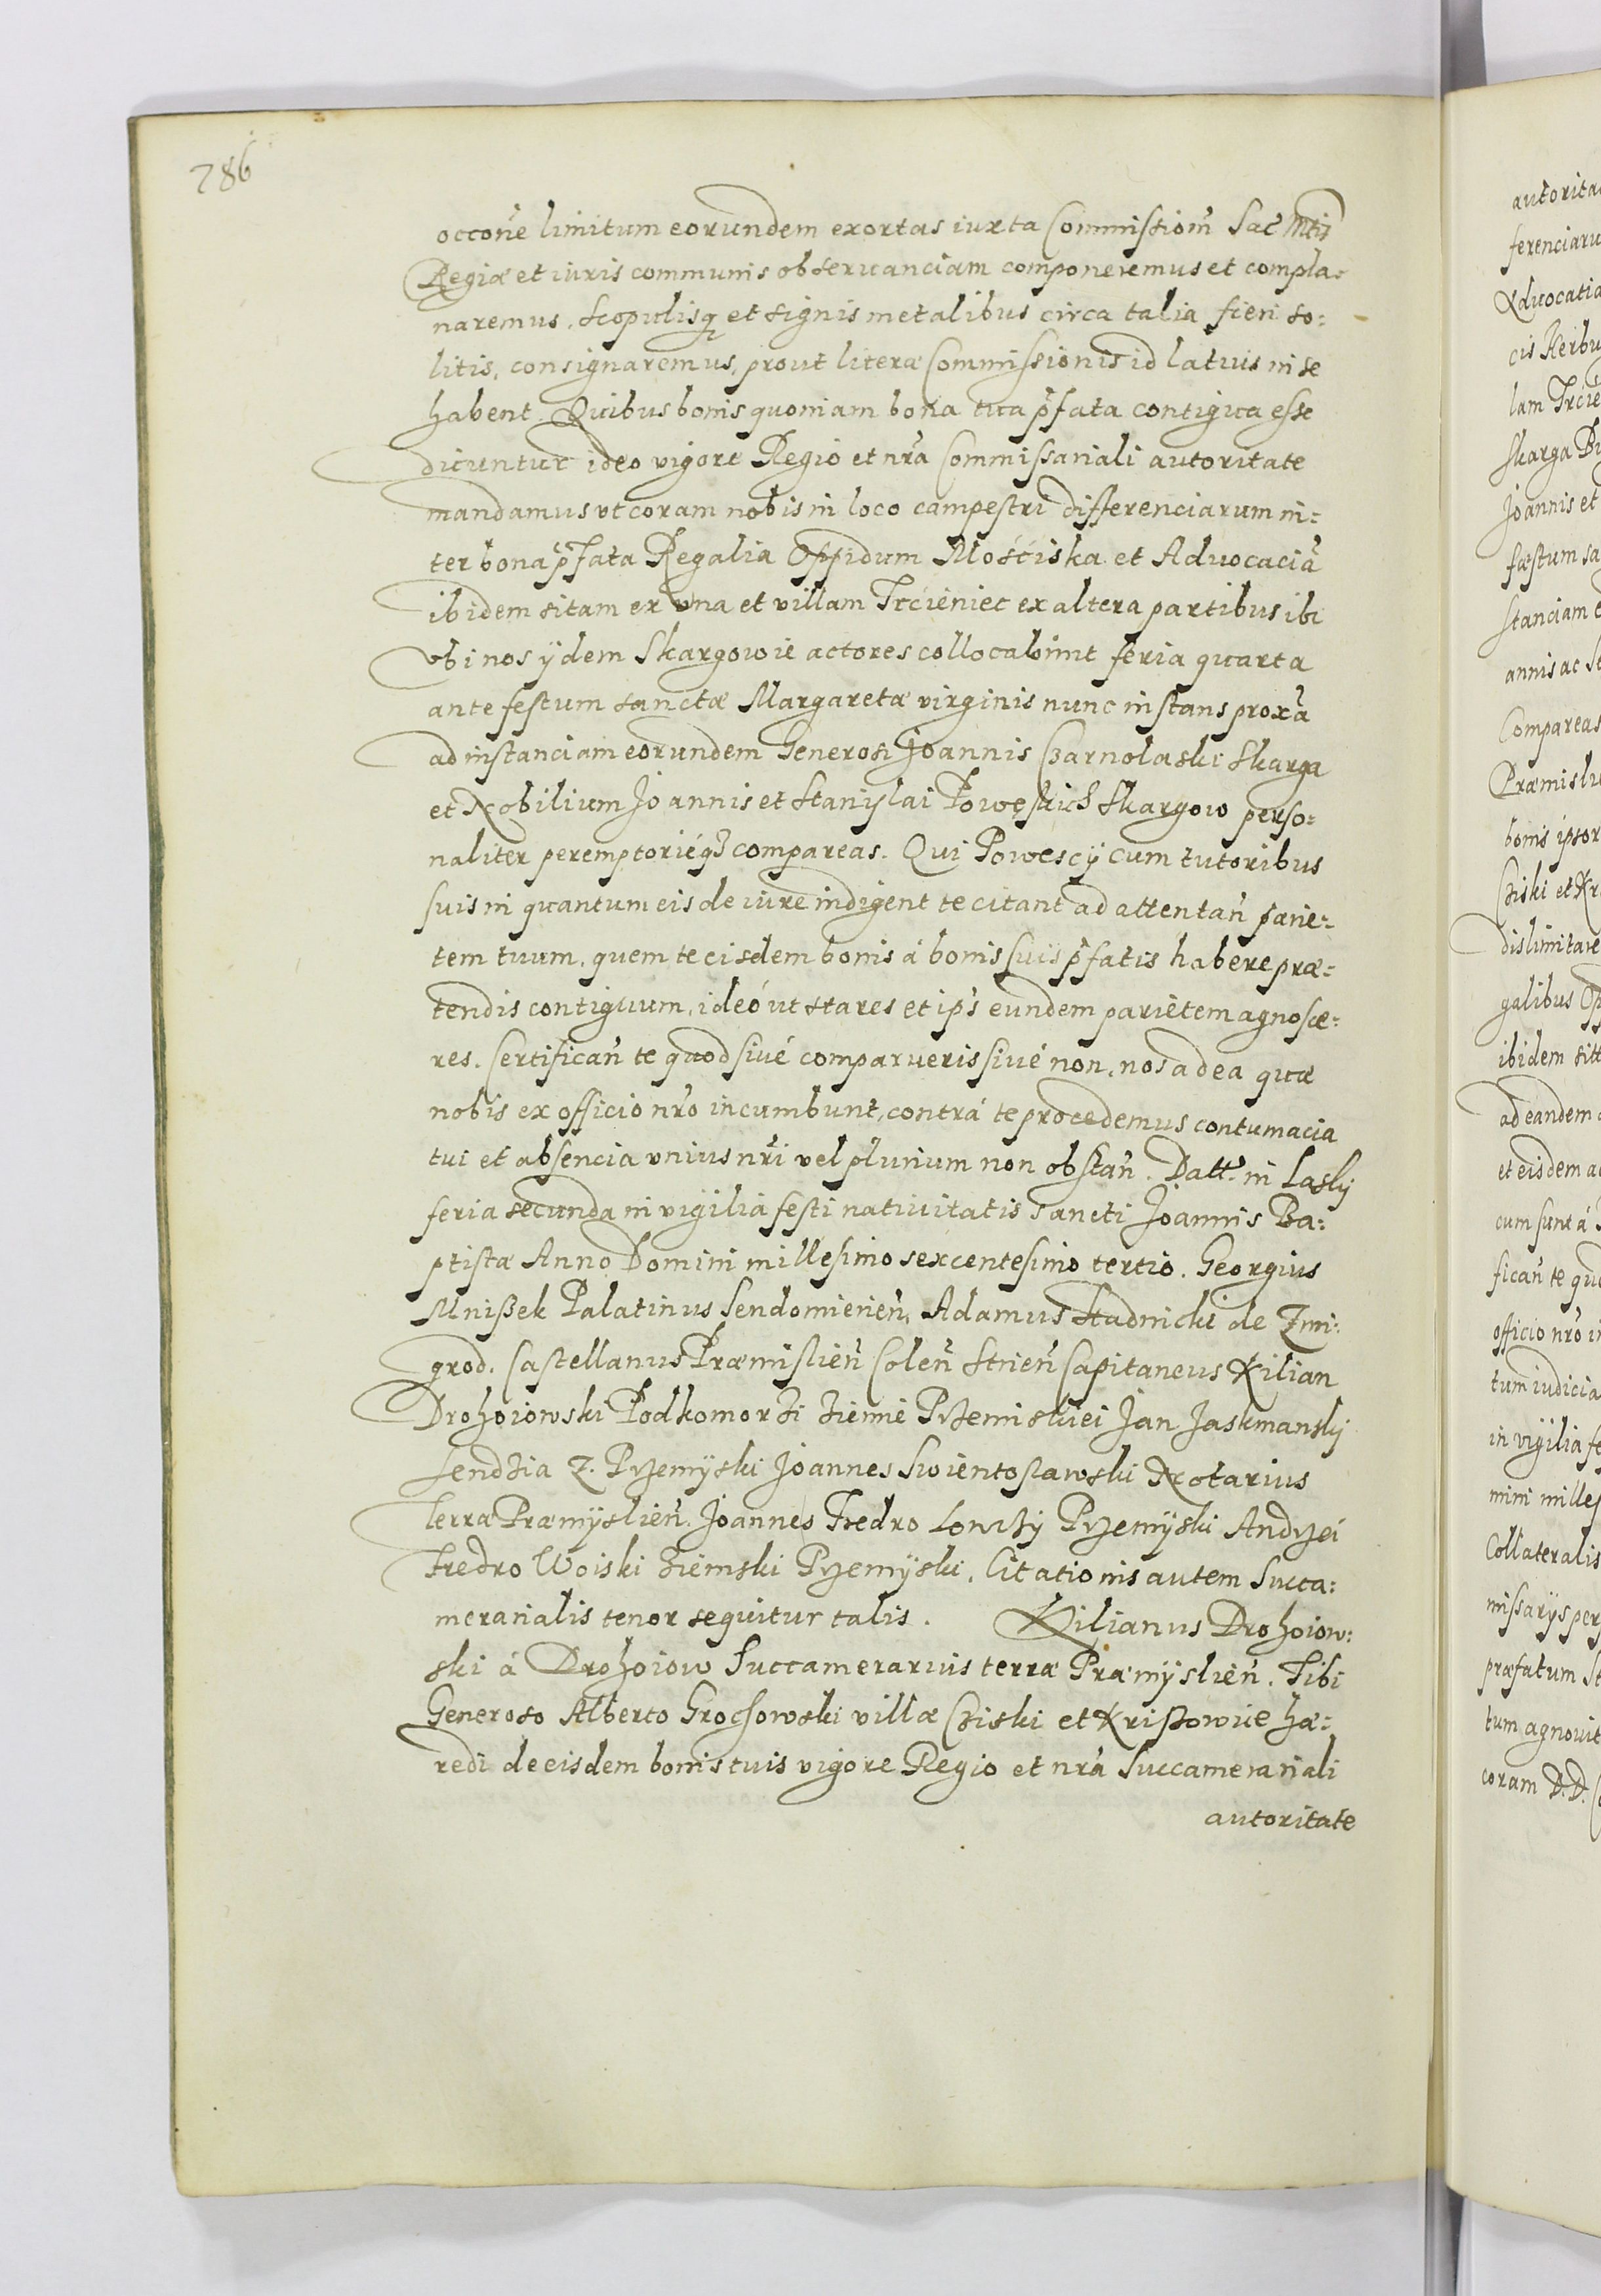 786
occone limitum eorundem exortas iuxta Commission Sac Mtis
Regiæ et iuris communis obseruanciam componeremus et compla-
naremus, scopulisq et signis metalibus circa talia fieri so:
litis, consignaremus, prout literæ Commissionis id latius in se
habent. Quibus bonis quoniam bona tua pfata contigua esse
dicuntur ideo vigore Regio et nra Commissariali autoritate
mandamus vt coram nobis in loco campestri differenciarum in:
ter bona pfata Regalia Oppidum Mosciska et Aduocaciã
ibidem sitam ex vna et villam Trcieniec ex altera partibus ibi
vbi nos ÿdem Skargowie actores collocabunt feria quarta
ante festum sanctæ Margaretæ virginis nunc instans proxã
ad instanciam eorundem Generosi Joannis Czarnolaski Skarga
et Nobilium Joannis et Stanislai Powęskich Skargow perso:
naliter peremptorieq compareas. Qui Powescÿ cum tutoribus
suis in quantum eis de iure indigent te citant ad attentan parie:
tem tuum, quem te eisdem bonis á bonis suis pfatis habere præ:
tendis contiguum, ideó ut stares et ips eundem parietem agnosce:
res. Certifican te quod siué comparueris siué non, nos ad ea quæ
nobis ex officio nro incumbunt, contrá te procedemus contumacia
tui et absencia vnius nri vel plurium non obstan. Datt in Laskÿ
feria secunda in vigilia festi natiuitatis sancti Joannis Ba:
ptistæ Anno Domini millesimo sexcentesimo tertio. Georgius
Mnißek Palatinus Sendomirien, Adamus Stadnicki de Zmi:
grod. Castellanus Præmislien Colen Strien Capitaneus Kilian
Drohoiowski Podkomorzi ziemie Przemiskiei Jan Jaskmanskÿ
Sendzia Z. Przemÿski Joannes Swientosławski Notarius
terræ Præmÿslien. Joannes Fredro Lowczÿ Przemÿski Andrzei
Fredro Woiski ziemski Przemÿski. Citationis autem Succa:
merarialis tenor sequitur talis. Kilianus Drohoiow:
ski á Drohoiow Succamerarius terræ Præmÿslien. Tibi
Generoso Alberto Grochowski villæ Cziski et Krißowice hæ:
redi de eisdem bonis tuis vigore Regio et nra Succamerariali
autoritate